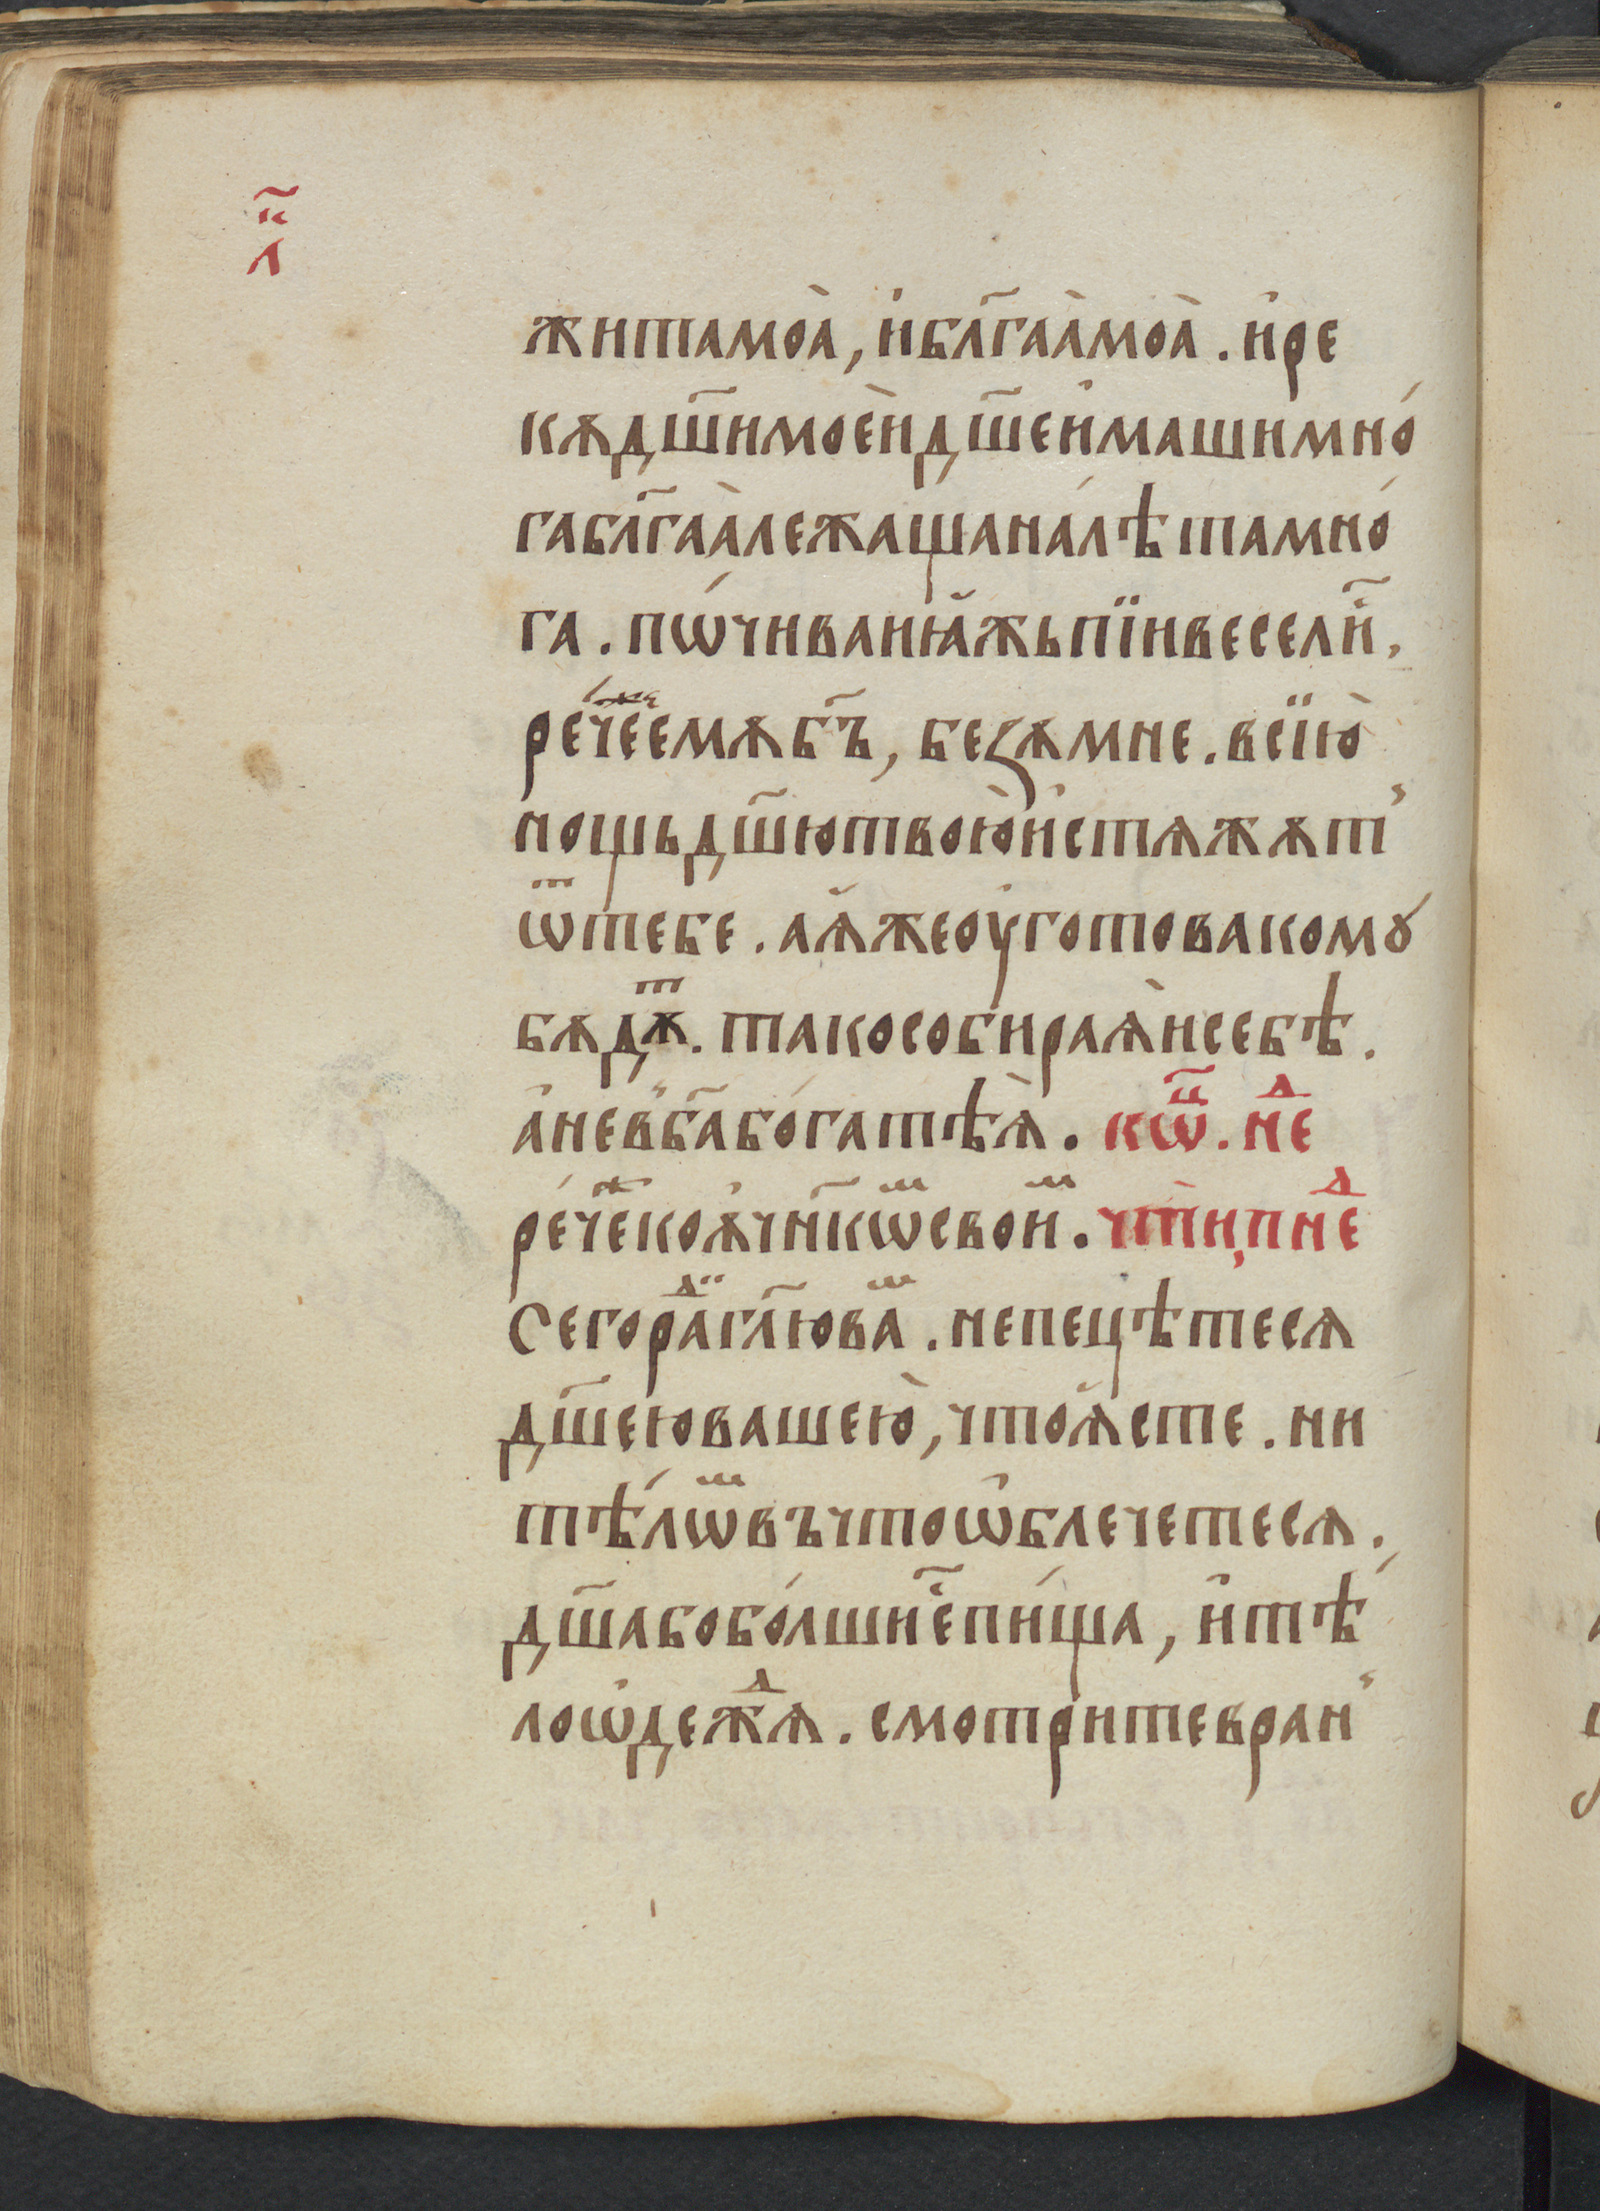 л҃и
житамоа̀, и҆бл҃гаа̀моа̀. и҆ре
кѫдш҃имоѐидш҃еи҆машимно́
габл҃гаа̀лежащана́лѣтамно́
га. пѡ́чиваниа҆жьпїивесели҃,
ре́чежеемѫбг҃ъ, беꙁѫмне. всїю̀
нощьдш҃ютвою̀и҆стѧжѫт
ѿтебе. аꙗ҆жеоуготовакомꙋ
бѫдѫⷮ. такособираѧ̀исебѣ.
а҆невб҃або́гатѣѧ̀. кѡⷰ҇. неⷣ
ре́чежⷤекоѫ҆чн҃кѡⷨсвоиⷨ. чтⷩ҇и,пнеⷣ
Сегораⷣигл҃ювамⷨ. непецѣтесѧ
дш҃еювашею̀, чтоꙗ҆сте. ни
тѣ́лѡⷨвъчтоѡ҆блечетесѧ.
дш҃абобо́лшие҃пи́ща, и҆тѣ́
лоѡ҆дежⷣѧ. смотритевран